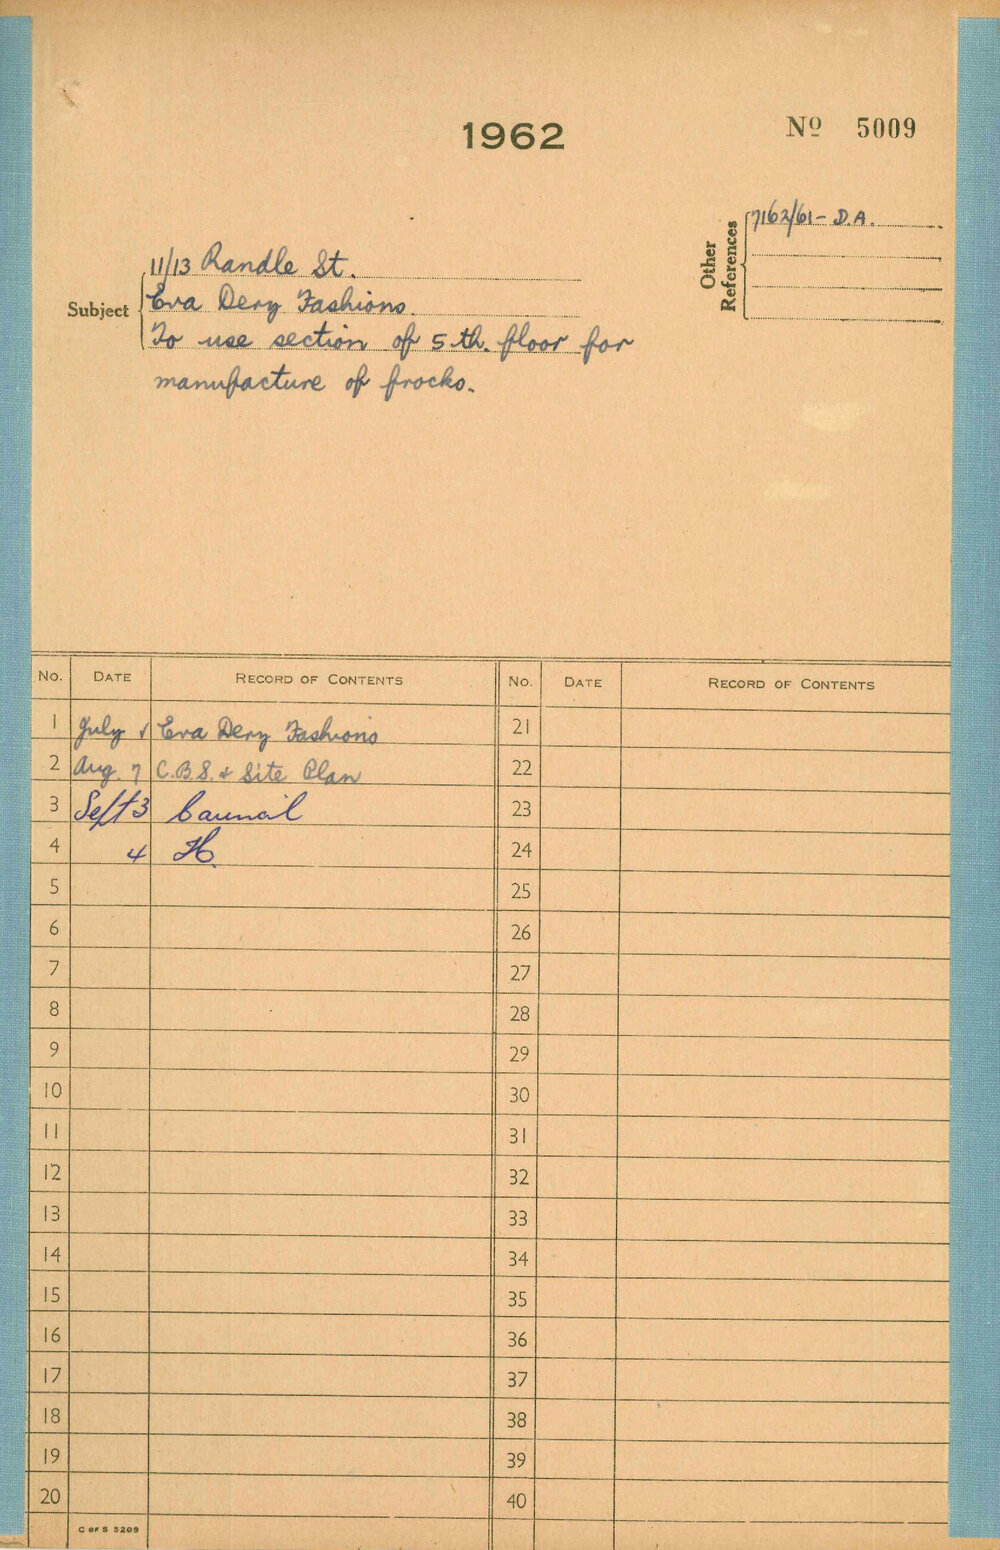 1962
Nº 5009
Other References
7162/61 - D.A.
Subject
11/13 Randle St.
Eva Dery Fashions
To use section of 5th. floor for
manufacture of frocks.
No. DATE RECORD OF CONTENTS No. DATE RECORD OF CONTENTS
1 July Eva Dery Fashions 21
2 Aug. 7 C.B.S. & Site Plan 22
3 Sept 3 Council 23
4 4 H. 24
5 25
6 26
7 27
8 28
9 29
10 30
11 31
12 32
13 33
14 34
15 35
16 36
17 37
18 38
19 39
20 40
C OF S 5209